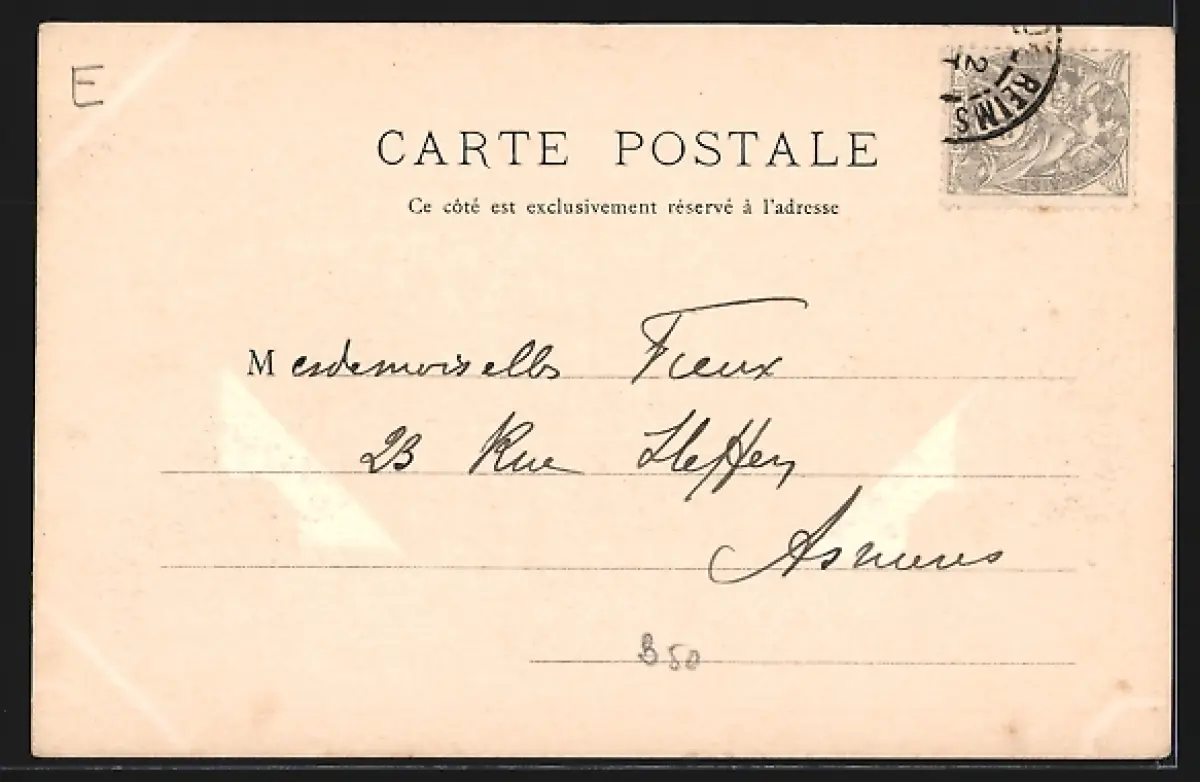 E
REIMS
CARTE POSTALE
Ce côté est exclusivement réservé à l'adresse
Mesdemoiselles Fieux
23 Rue Steffen
Asnieres
B 50